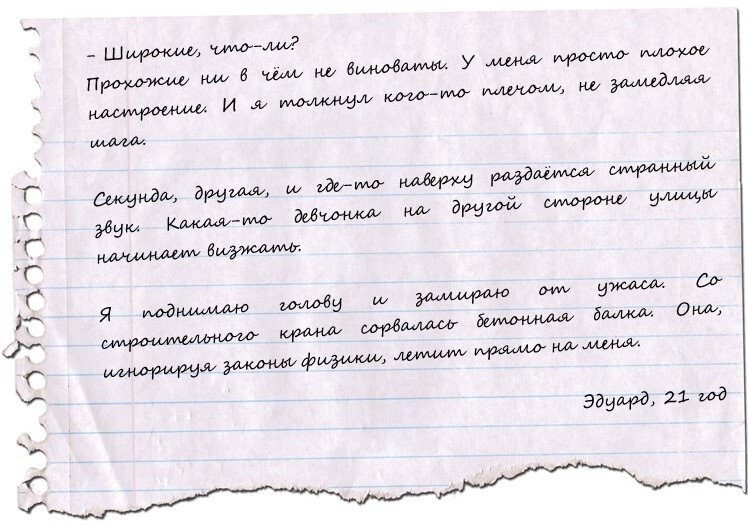 - Широкие, что-ли?
Прохожие ни в чём не виноваты. У меня просто плохое
настроение. И я толкнул кого-то плечом, не замедляя
шага.
Секунда, другая, и где-то наверху раздаётся странный
звук. Какая-то девчонка на другой стороне улицы
начинает визжать.
Я поднимаю голову и замираю от ужаса. Со
строительного крана сорвалась бетонная балка. Она,
игнорируя законы физики, летит прямо на меня.
Эдуард, 21 год